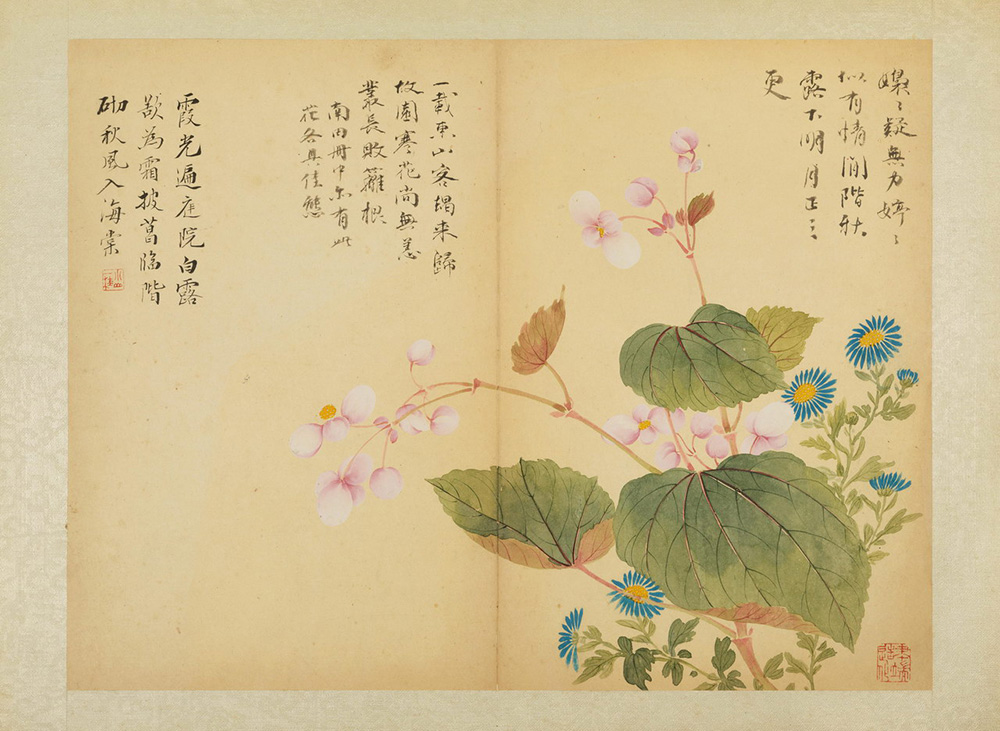 嬝〻疑無力婷〻
似有情閒階秋
露下明月正三
更
一載東山客朅来歸
故園寒花尚無恙
叢長敗籬根
南田冊中亦有此
花各具佳態
霞光遍庭院白露
欲為霜披葛臨階
砌秋風入海棠